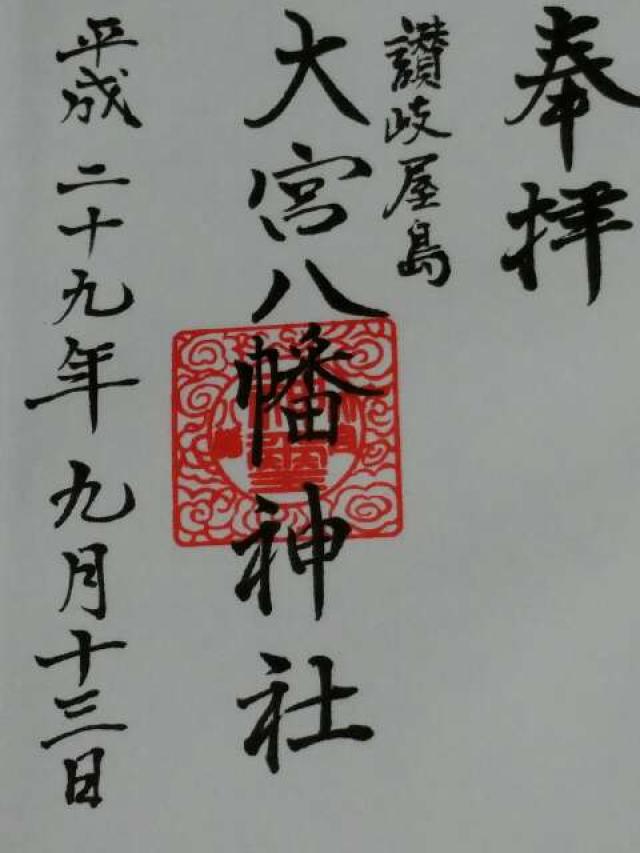 奉拝
讃岐屋島
大宮八幡神社
平成二十九年九月十三日